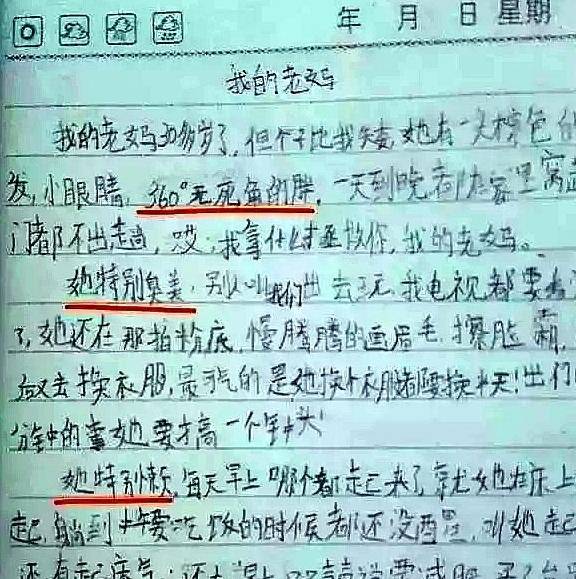 年 月 日 星期
我的老妈
我的老妈30多岁了,但个子比我矮,她有一头棕色的
发,小眼睛,360°无死角的胖,一天到晚都在家里窝
门都不出,哎:我拿什么拯救你,我的老妈。
她特别臭美,别人叫我们出去玩,我电视都要看
了,她还在那拍粉底,慢腾腾的画眉毛,擦脸霜,
又去换衣服,最气的是她换个衣服都要换半天!出门
分钟的事她要搞一个钟头!
她特别懒,每天早上哪个都起来了,就她在床上
起,睡到中午要吃饭的时候都还没醒,叫她起
还有起床气;还